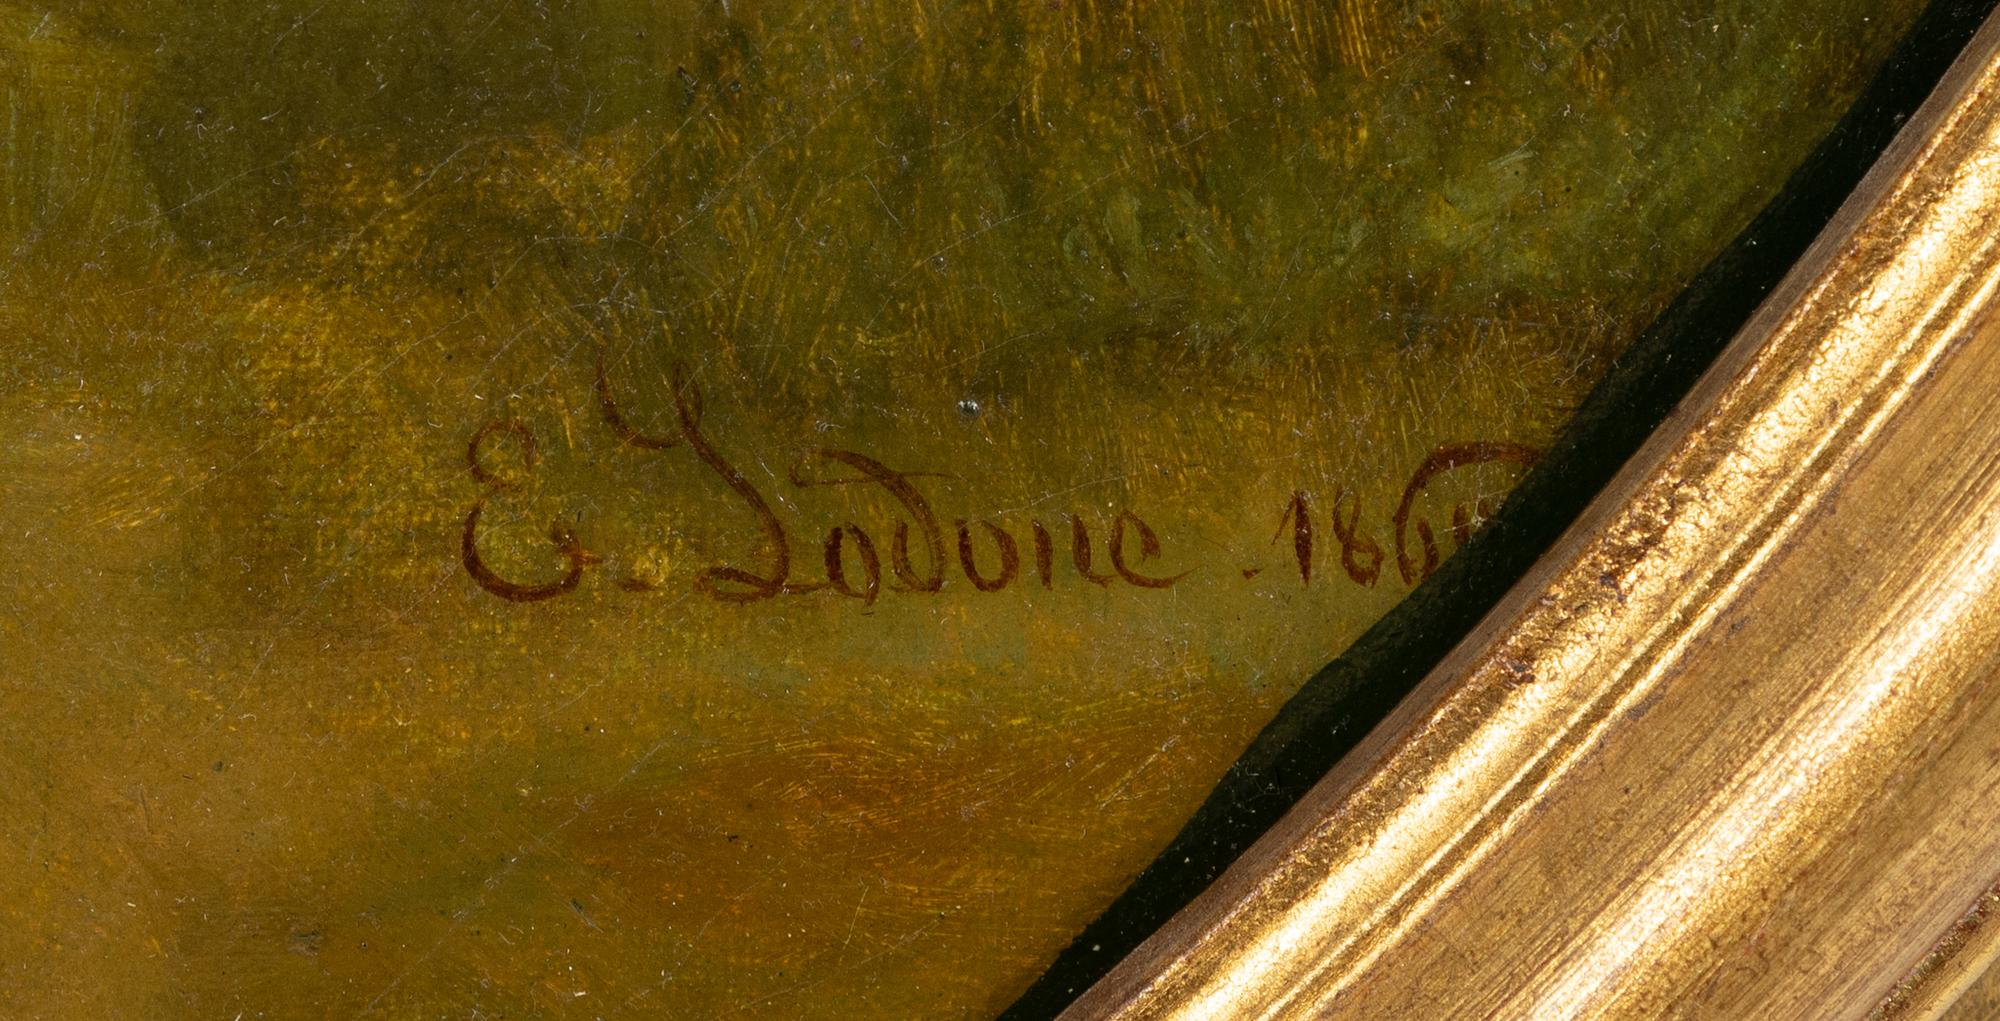 E. Lodone . 186